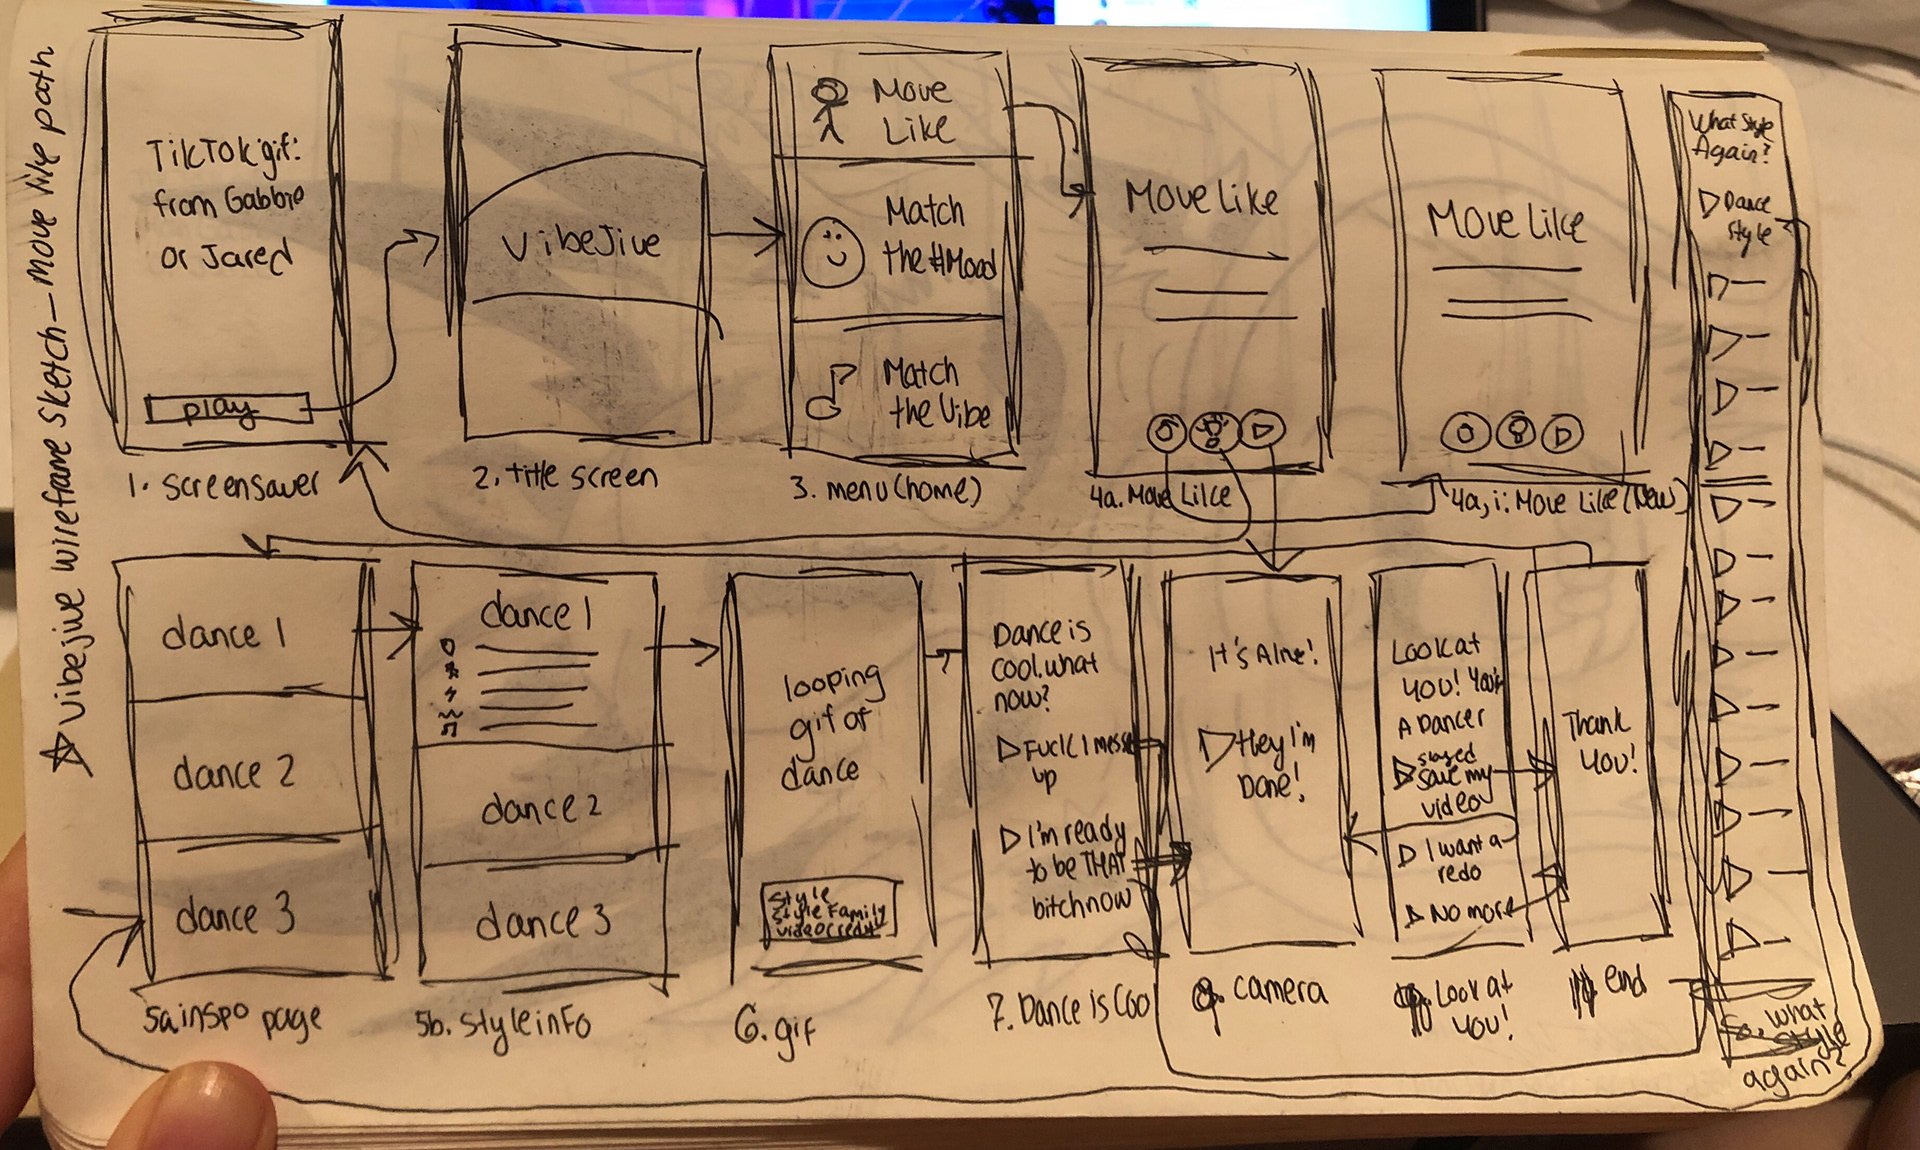 ☆ Vibejive wireframe sketch — move like path
TikTok gif:
from Gabbie
or Jared
play
1. screensaver
VibeJive
2. title screen
Move
Like
Match
the #Mood
Match
the Vibe
3. menu (home)
Move Like
4a. Move Like
Move Like
4a, i: Move Like (new)
What Style
Again?
Dance
style
dance 1
dance 2
dance 3
5a inspo page
dance 1
dance 2
dance 3
5b. style info
looping
gif of
dance
Style
Style Family
video credit
6. gif
Dance is
cool. what
now?
Fuck I mess
up
I'm ready
to be THAT
bitch now
7. Dance is Cool
It's Alive!
Hey I'm
Done!
camera
Look at
you! You're
A Dancer
save my
video
I want a
redo
No more
Look at
You!
Thank
You!
end
what
style
again?